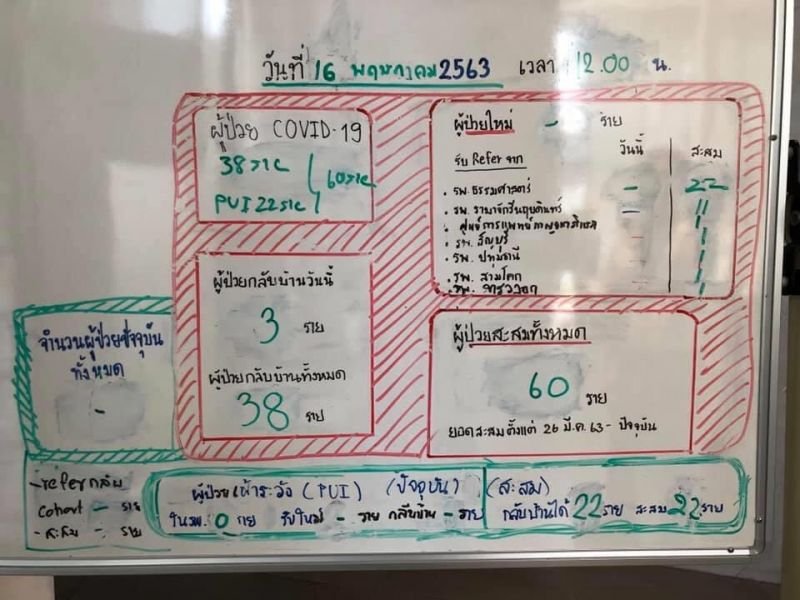 วันที่ 16 พฤษภาคม 2563 เวลา 12.00 น.
ผู้ป่วย COVID-19
38 ราย
PUI 22 ราย
60 ราย
ผู้ป่วยใหม่ - ราย
รับ Refer จาก วันนี้ สะสม
• รพ. ธรรมศาสตร์ - 22
• รพ. รามาจักรีนฤบดินทร์ - 11
• ศูนย์การแพทย์กาญจนาภิเษก
• รพ. ธัญบุรี - 1
• รพ. ปทุมธานี - 1
• รพ. สามโคก - 1
• รพ. 1
ผู้ป่วยกลับบ้านวันนี้
3 ราย
ผู้ป่วยกลับบ้านทั้งหมด
38 ราย
ผู้ป่วยสะสมทั้งหมด
60 ราย
ยอดสะสมตั้งแต่ 26 มี.ค. 63 - ปัจจุบัน
จำนวนผู้ป่วยปัจจุบัน
ทั้งหมด
-
- refer กลับ
cohort - ราย
- สะสม - ราย
ผู้ป่วยเฝ้าระวัง (PUI) (ปัจจุบัน)
ใน รพ. 0 ราย รับใหม่ - ราย กลับบ้าน - ราย
(สะสม)
กลับบ้านได้ 22 ราย สะสม 22 ราย